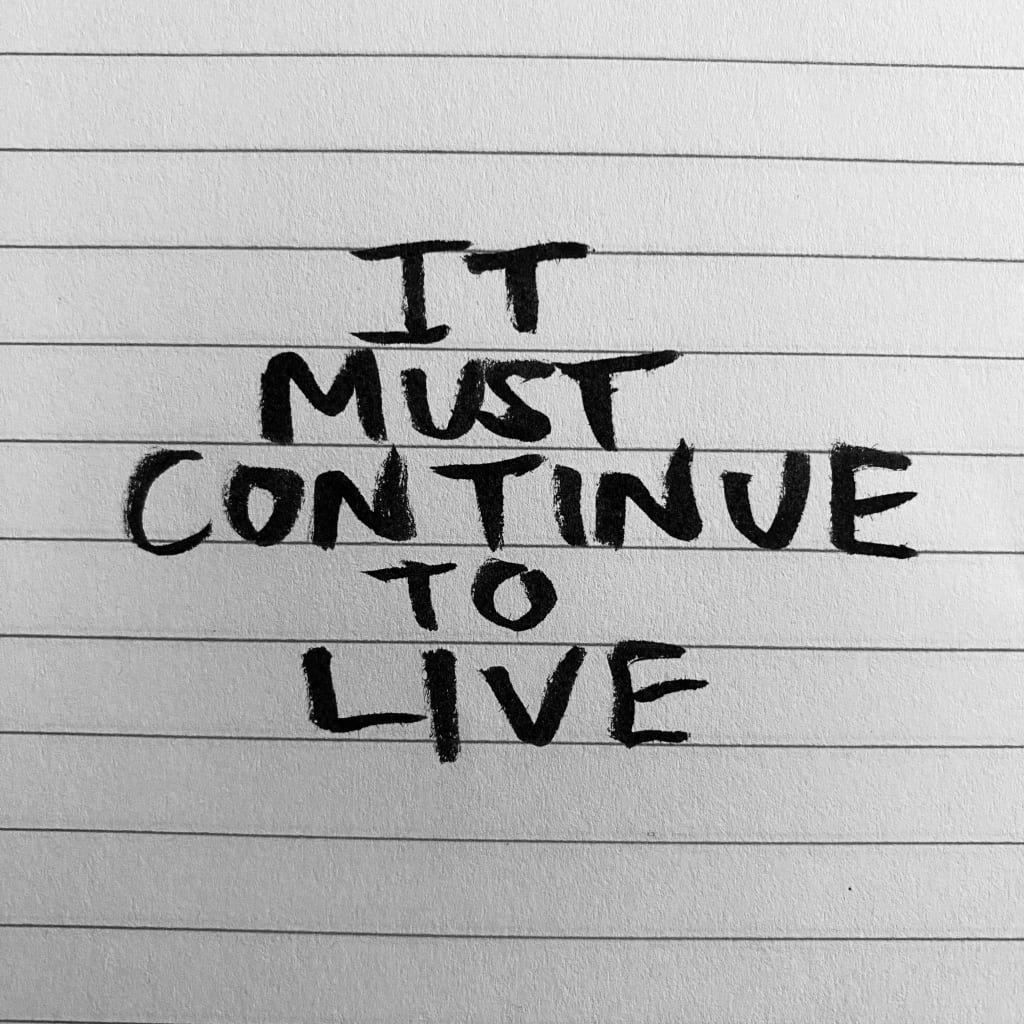 IT
MUST
CONTINUE
TO
LIVE